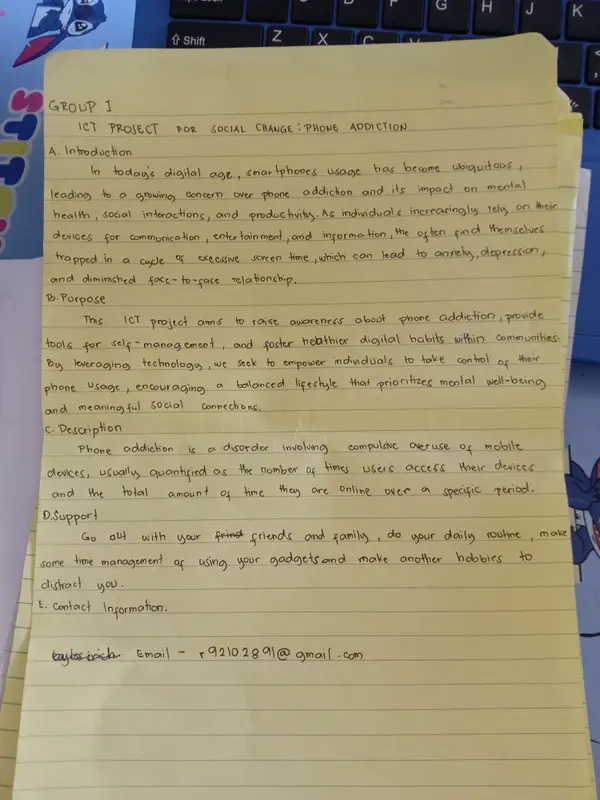 G
H
J
K
Shift
Z
X
STIT
GROUP I
ICT PROJECT FOR SOCIAL CHANGE : PHONE ADDICTION
A. Introduction
In today's digital age, smartphones usage has become ubiquitous,
leading to a growing concern over phone addiction and its impact on mental
health, social interactions, and productivity. As individuals increasingly rely on their
devices for communication, entertainment, and information, the often find themselves
trapped in a cycle of excessive screen time, which can lead to anxiety, depression,
and diminished face-to-face relationship.
B. Purpose
This ICT project aims to raise awareness about phone addiction, provide
tools for self-management, and foster healthier digital habits within communities.
By leveraging technology, we seek to empower individuals to take control of their
phone usage, encouraging a balanced lifestyle that prioritizes mental well-being
and meaningful social connections.
C. Description
Phone addiction is a disorder involving compulsive overuse of mobile
devices, usually quantified as the number of times users access their devices
and the total amount of time they are online over a specific period.
D. Support
Go out with your friends and family, do your daily routine, make
some time management of using your gadgets and make another hobbies to
distract you.
E. Contact Information.
Email - r92102891@gmail.com